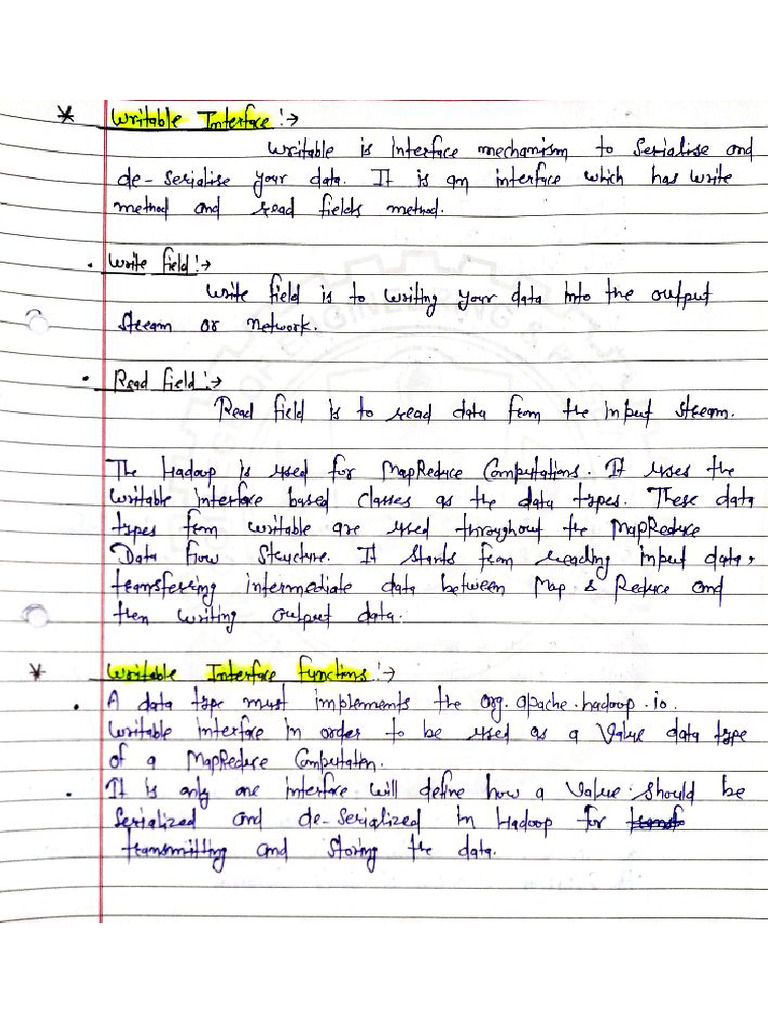 * Writable Interface :→
Writable is Interface mechanism to Serialise and
de-serialise your data. It is an interface which has write
method and read fields method.
• Write field :→
Write field is to writing your data into the output
stream or network.
• Read field :→
Read field is to read data from the input stream.
The Hadoop is used for MapReduce Computations. It uses the
writable interface based classes as the data types. These data
types from writable are used throughout the MapReduce
Data flow structure. It starts from reading input data,
transfering intermediate data between Map & Reduce and
then writing output data.
* Writable Interface functions :→
• A data type must implements the org.apache.hadoop.io.
writable interface in order to be used as a value data type
of a MapReduce Computation.
• It is only one interface will define how a value should be
serialized and de-serialized in Hadoop for
transmitting and storing the data.